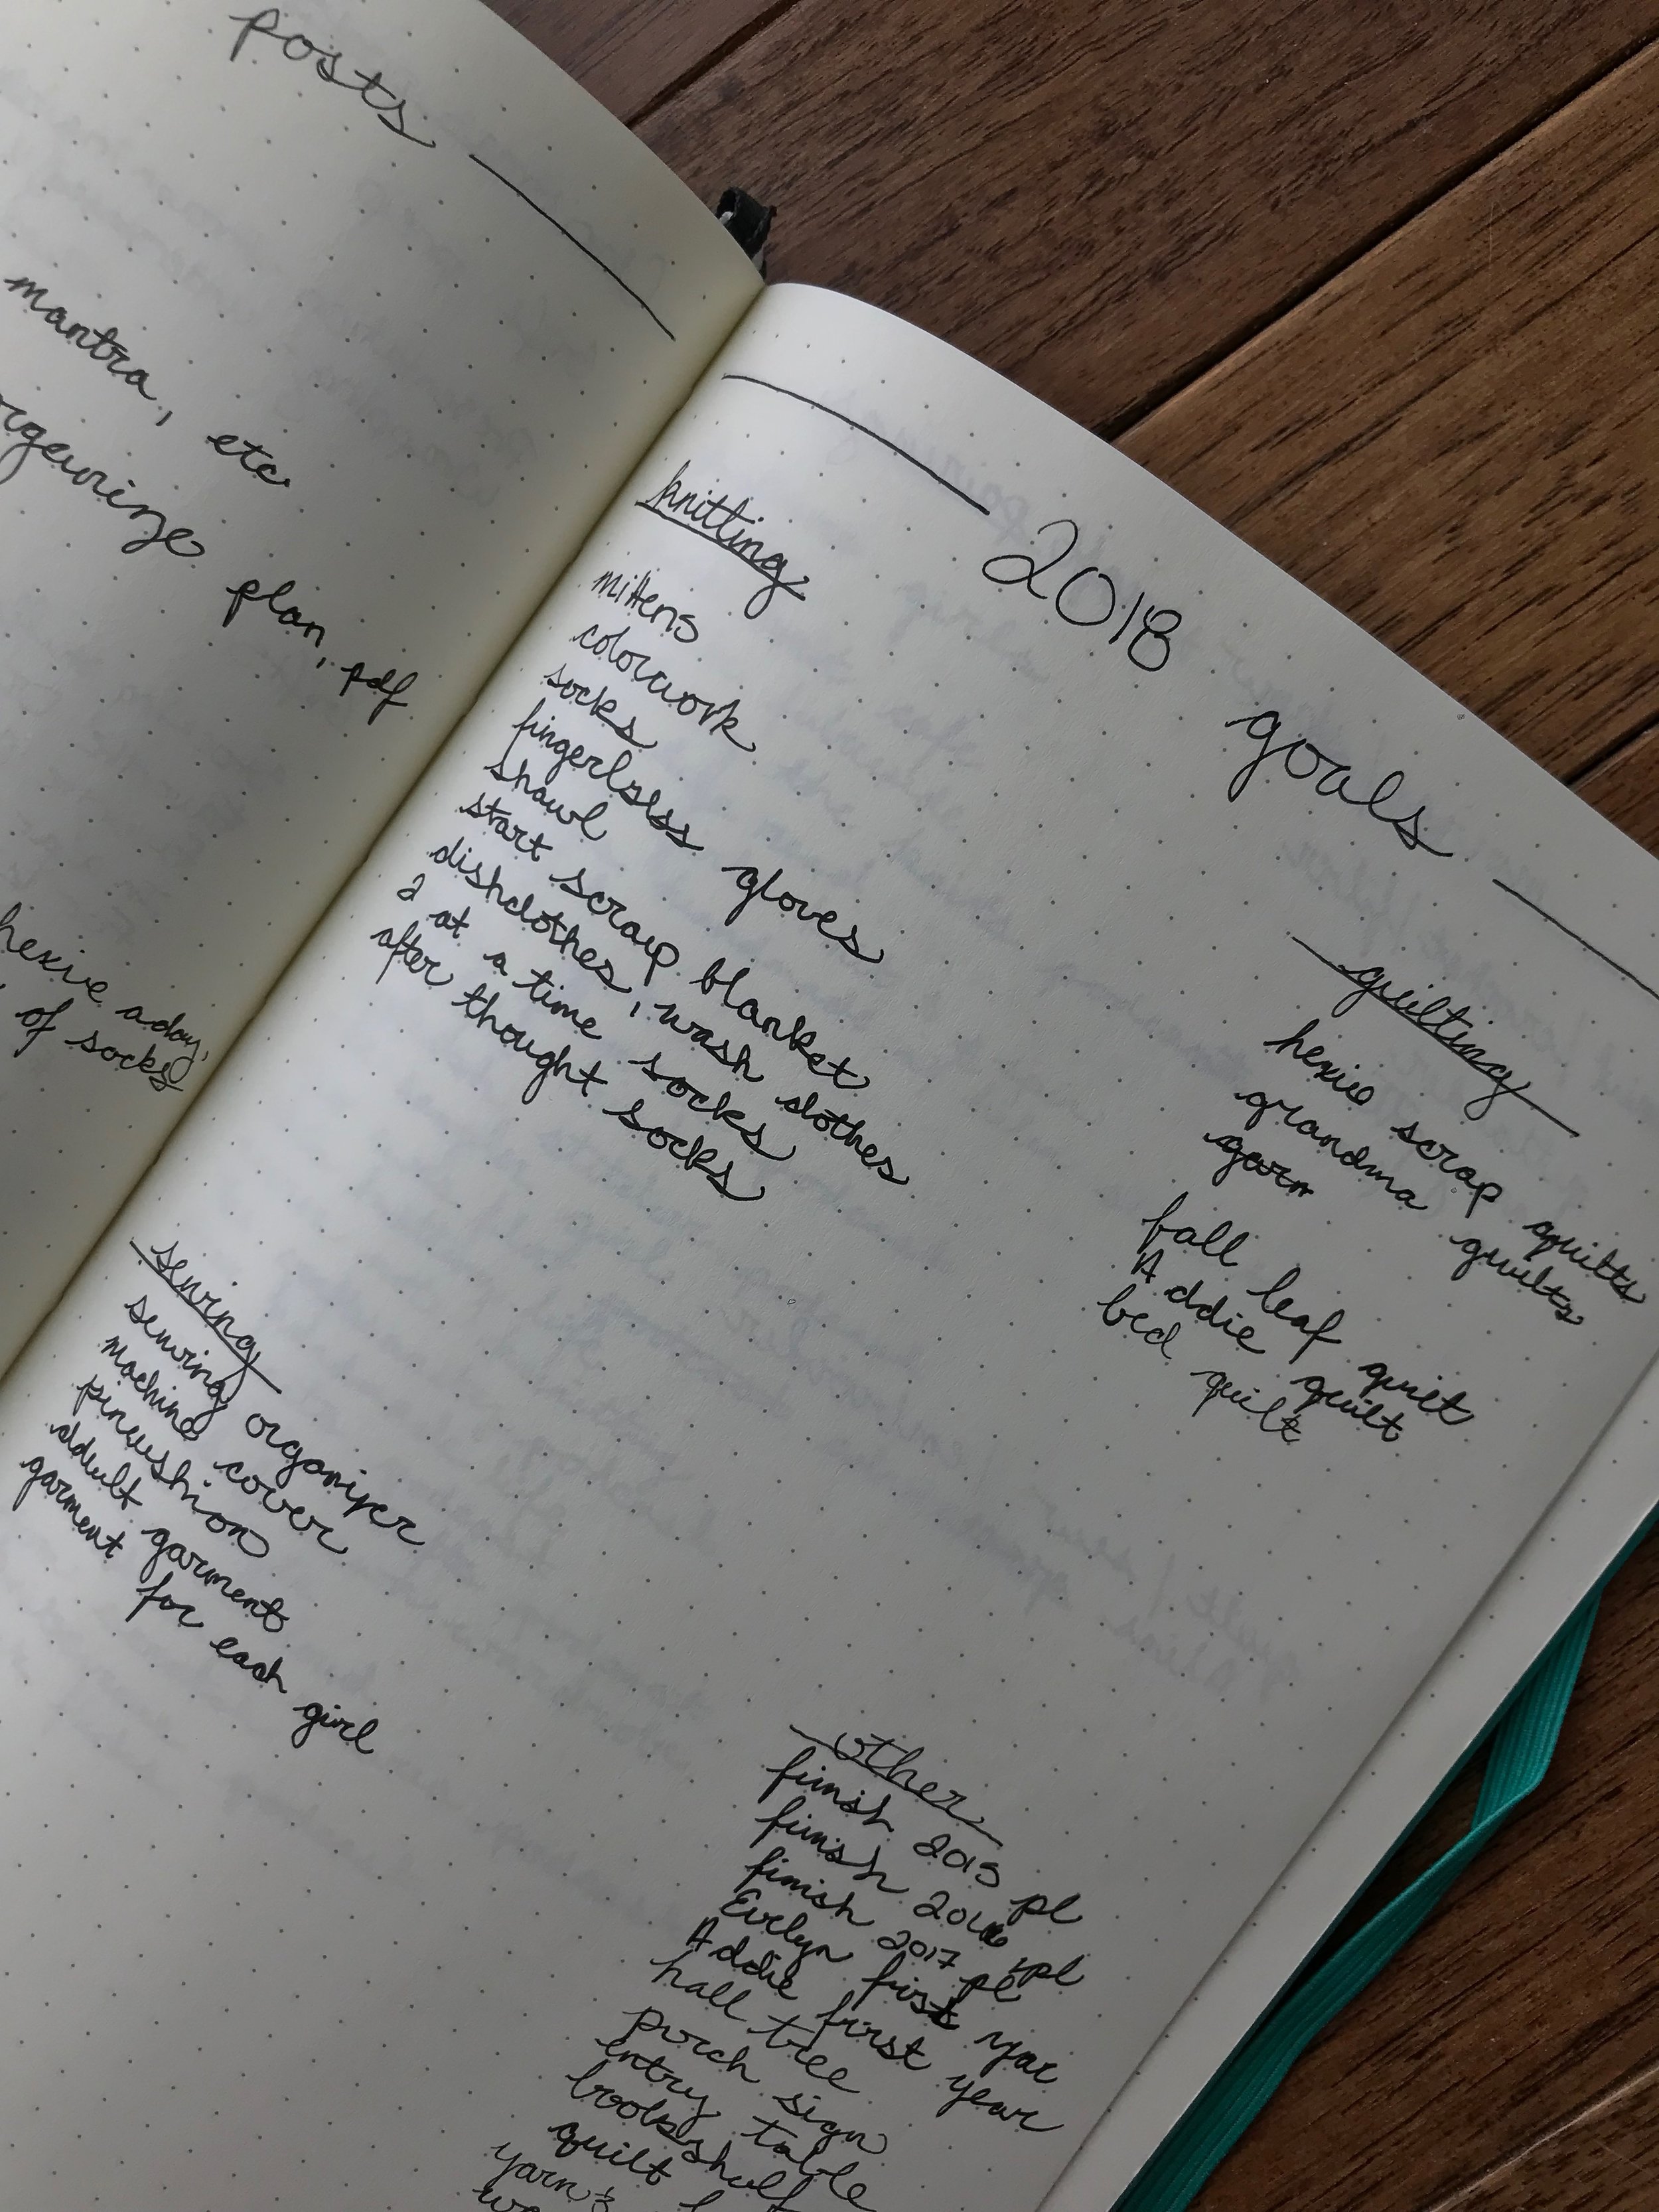 posts
mantra, etc
plan, pdf
hexie a day,
of socks
2018 goals
knitting
mittens
colorwork
socks
fingerless gloves
shawl
start scrap blanket
dishclothes, wash clothes
2 at a time socks
after thought socks
quilting
hexie scrap quilts
grandma quilts
garn
fall leaf quilt
Addie quilt
bed quilt
sewing
sewing organizer
machine cover
pincushion
adult garment
garment for each girl
other
finish 2015 pl
finish 2016 pl
finish 2017 pl
Evelyn first year
Addie first year
hall tree
porch sign
entry table
bookshelf
quilt
yarn &